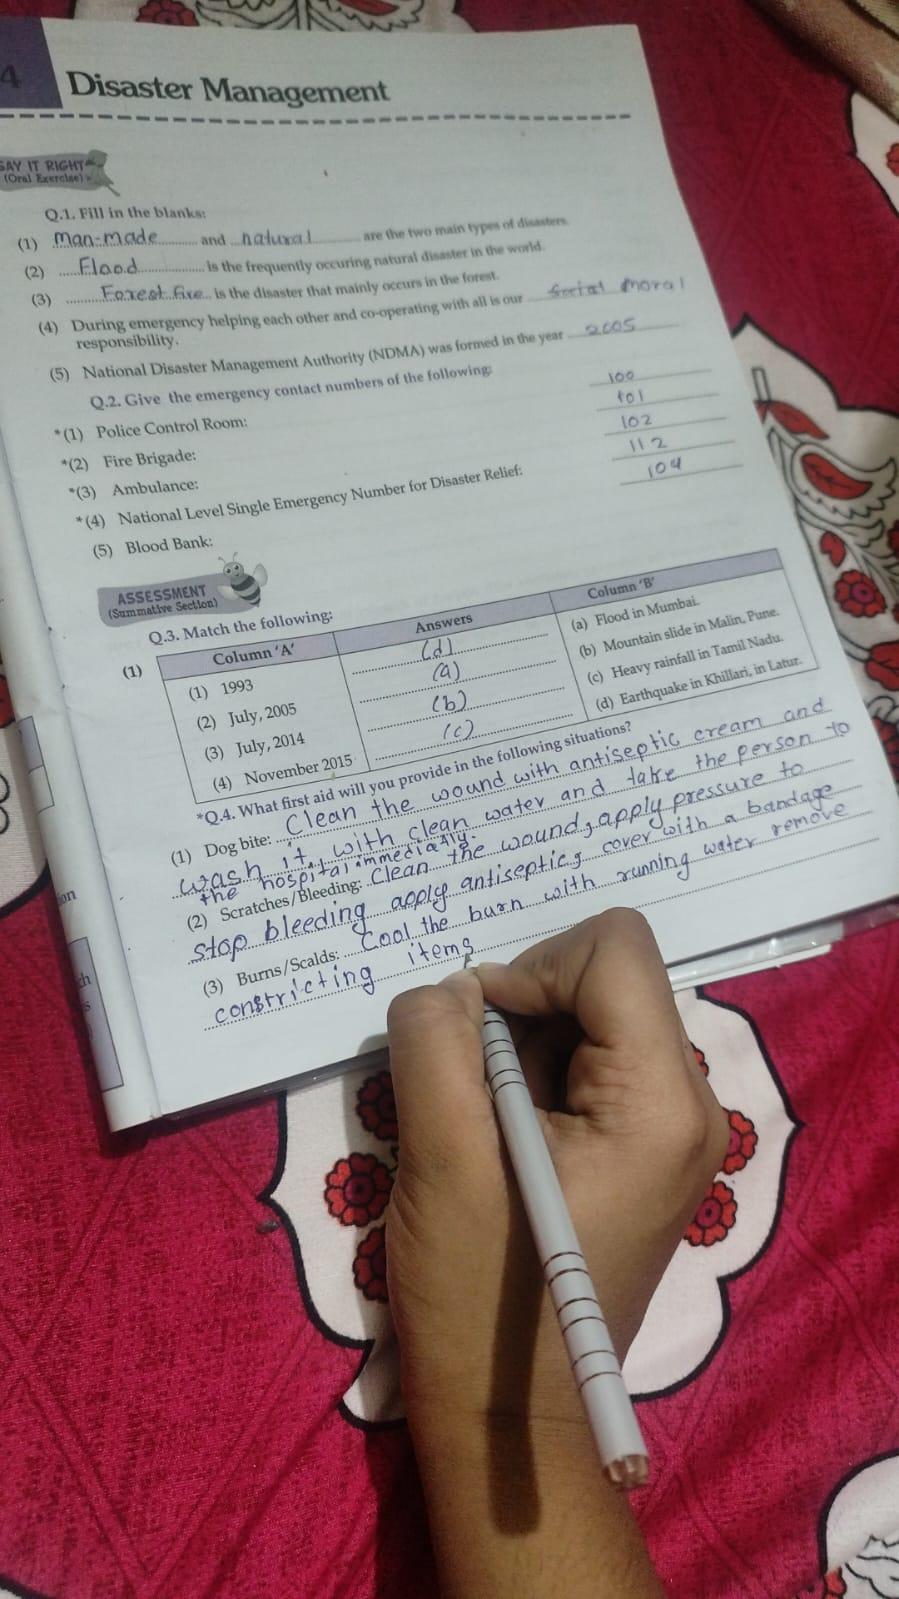 4
Disaster Management
SAY IT RIGHT
(Oral Exercise)
Q.1. Fill in the blanks:
(1) man-made and natural are the two main types of disasters.
(2) Flood is the frequently occuring natural disaster in the world.
(3) Forest fire is the disaster that mainly occurs in the forest.
(4) During emergency helping each other and co-operating with all is our social moral
responsibility.
(5) National Disaster Management Authority (NDMA) was formed in the year 2005
Q.2. Give the emergency contact numbers of the following:
*(1) Police Control Room: 100
*(2) Fire Brigade: 101
*(3) Ambulance: 102
*(4) National Level Single Emergency Number for Disaster Relief: 112
(5) Blood Bank: 104
ASSESSMENT
(Summative Section)
Q.3. Match the following:
(1) Column 'A' Answers Column 'B'
(1) 1993 (d) (a) Flood in Mumbai.
(2) July, 2005 (a) (b) Mountain slide in Malin, Pune.
(3) July, 2014 (b) (c) Heavy rainfall in Tamil Nadu.
(4) November 2015 (c) (d) Earthquake in Khillari, in Latur.
*Q.4. What first aid will you provide in the following situations?
(1) Dog bite: Clean the wound with antiseptic cream and
wash it, with clean water and take the person to
the hospital immediatly.
(2) Scratches/Bleeding: Clean the wound, apply pressure to
stop bleeding apply antiseptic, cover with a bandage
(3) Burns/Scalds: Cool the burn with running water remove
constricting items